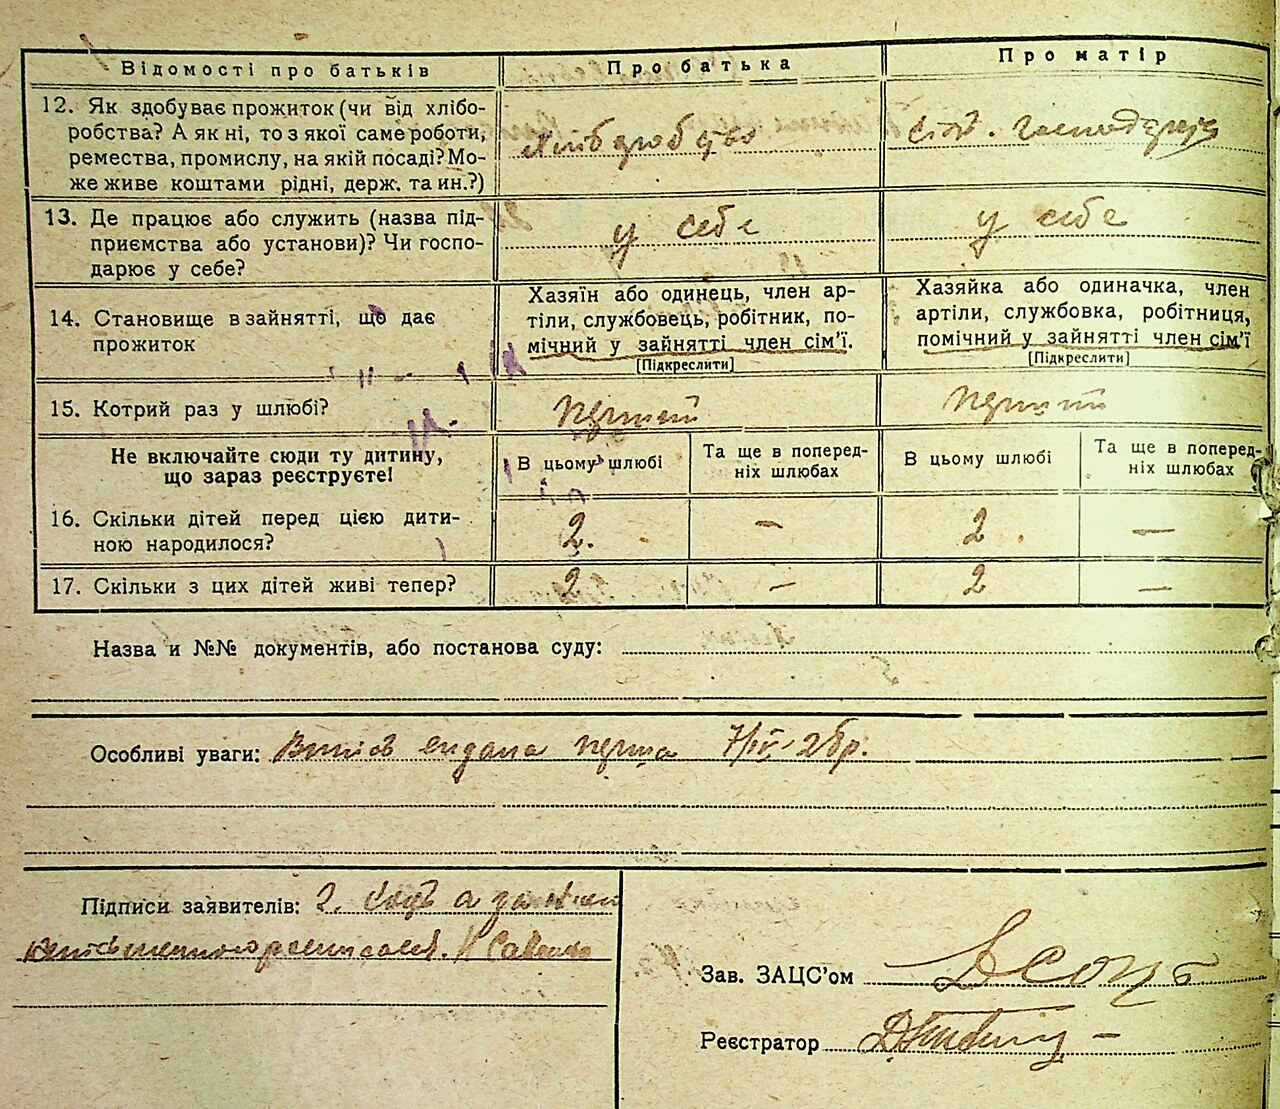 Відомості про батьків
Про батька
Про матір
12. Як здобуває прожиток (чи від хлібо-
робства? А як ні, то з якої саме роботи,
ремества, промислу, на якій посаді? Мо-
же живе коштами рідні, держ. та ин.?)
Хліборобство
13. Де працює або служить (назва під-
приємства або установи)? Чи госпо-
дарює у себе?
у себе
у себе
14. Становище в зайнятті, що дає
прожиток
Хазяїн або одинець, член ар-
тіли, службовець, робітник, по-
мічний у зайнятті член сім'ї.
[Підкреслити]
Хазяйка або одиначка, член
артіли, службовка, робітниця,
помічний у зайнятті член сім'ї
[Підкреслити]
15. Котрий раз у шлюбі?
перший
перший
Не включайте сюди ту дитину,
що зараз реєструєте!
В цьому шлюбі
Та ще в поперед-
ніх шлюбах
В цьому шлюбі
Та ще в поперед-
ніх шлюбах
16. Скільки дітей перед цією дити-
ною народилося?
2. — 2. —
17. Скільки з цих дітей живі тепер?
2 — 2 —
Назва и №№ документів, або постанова суду:
Особливі уваги: перша 7/IV-28р.
Підписи заявителів:
Зав. ЗАЦС'ом
Реєстратор